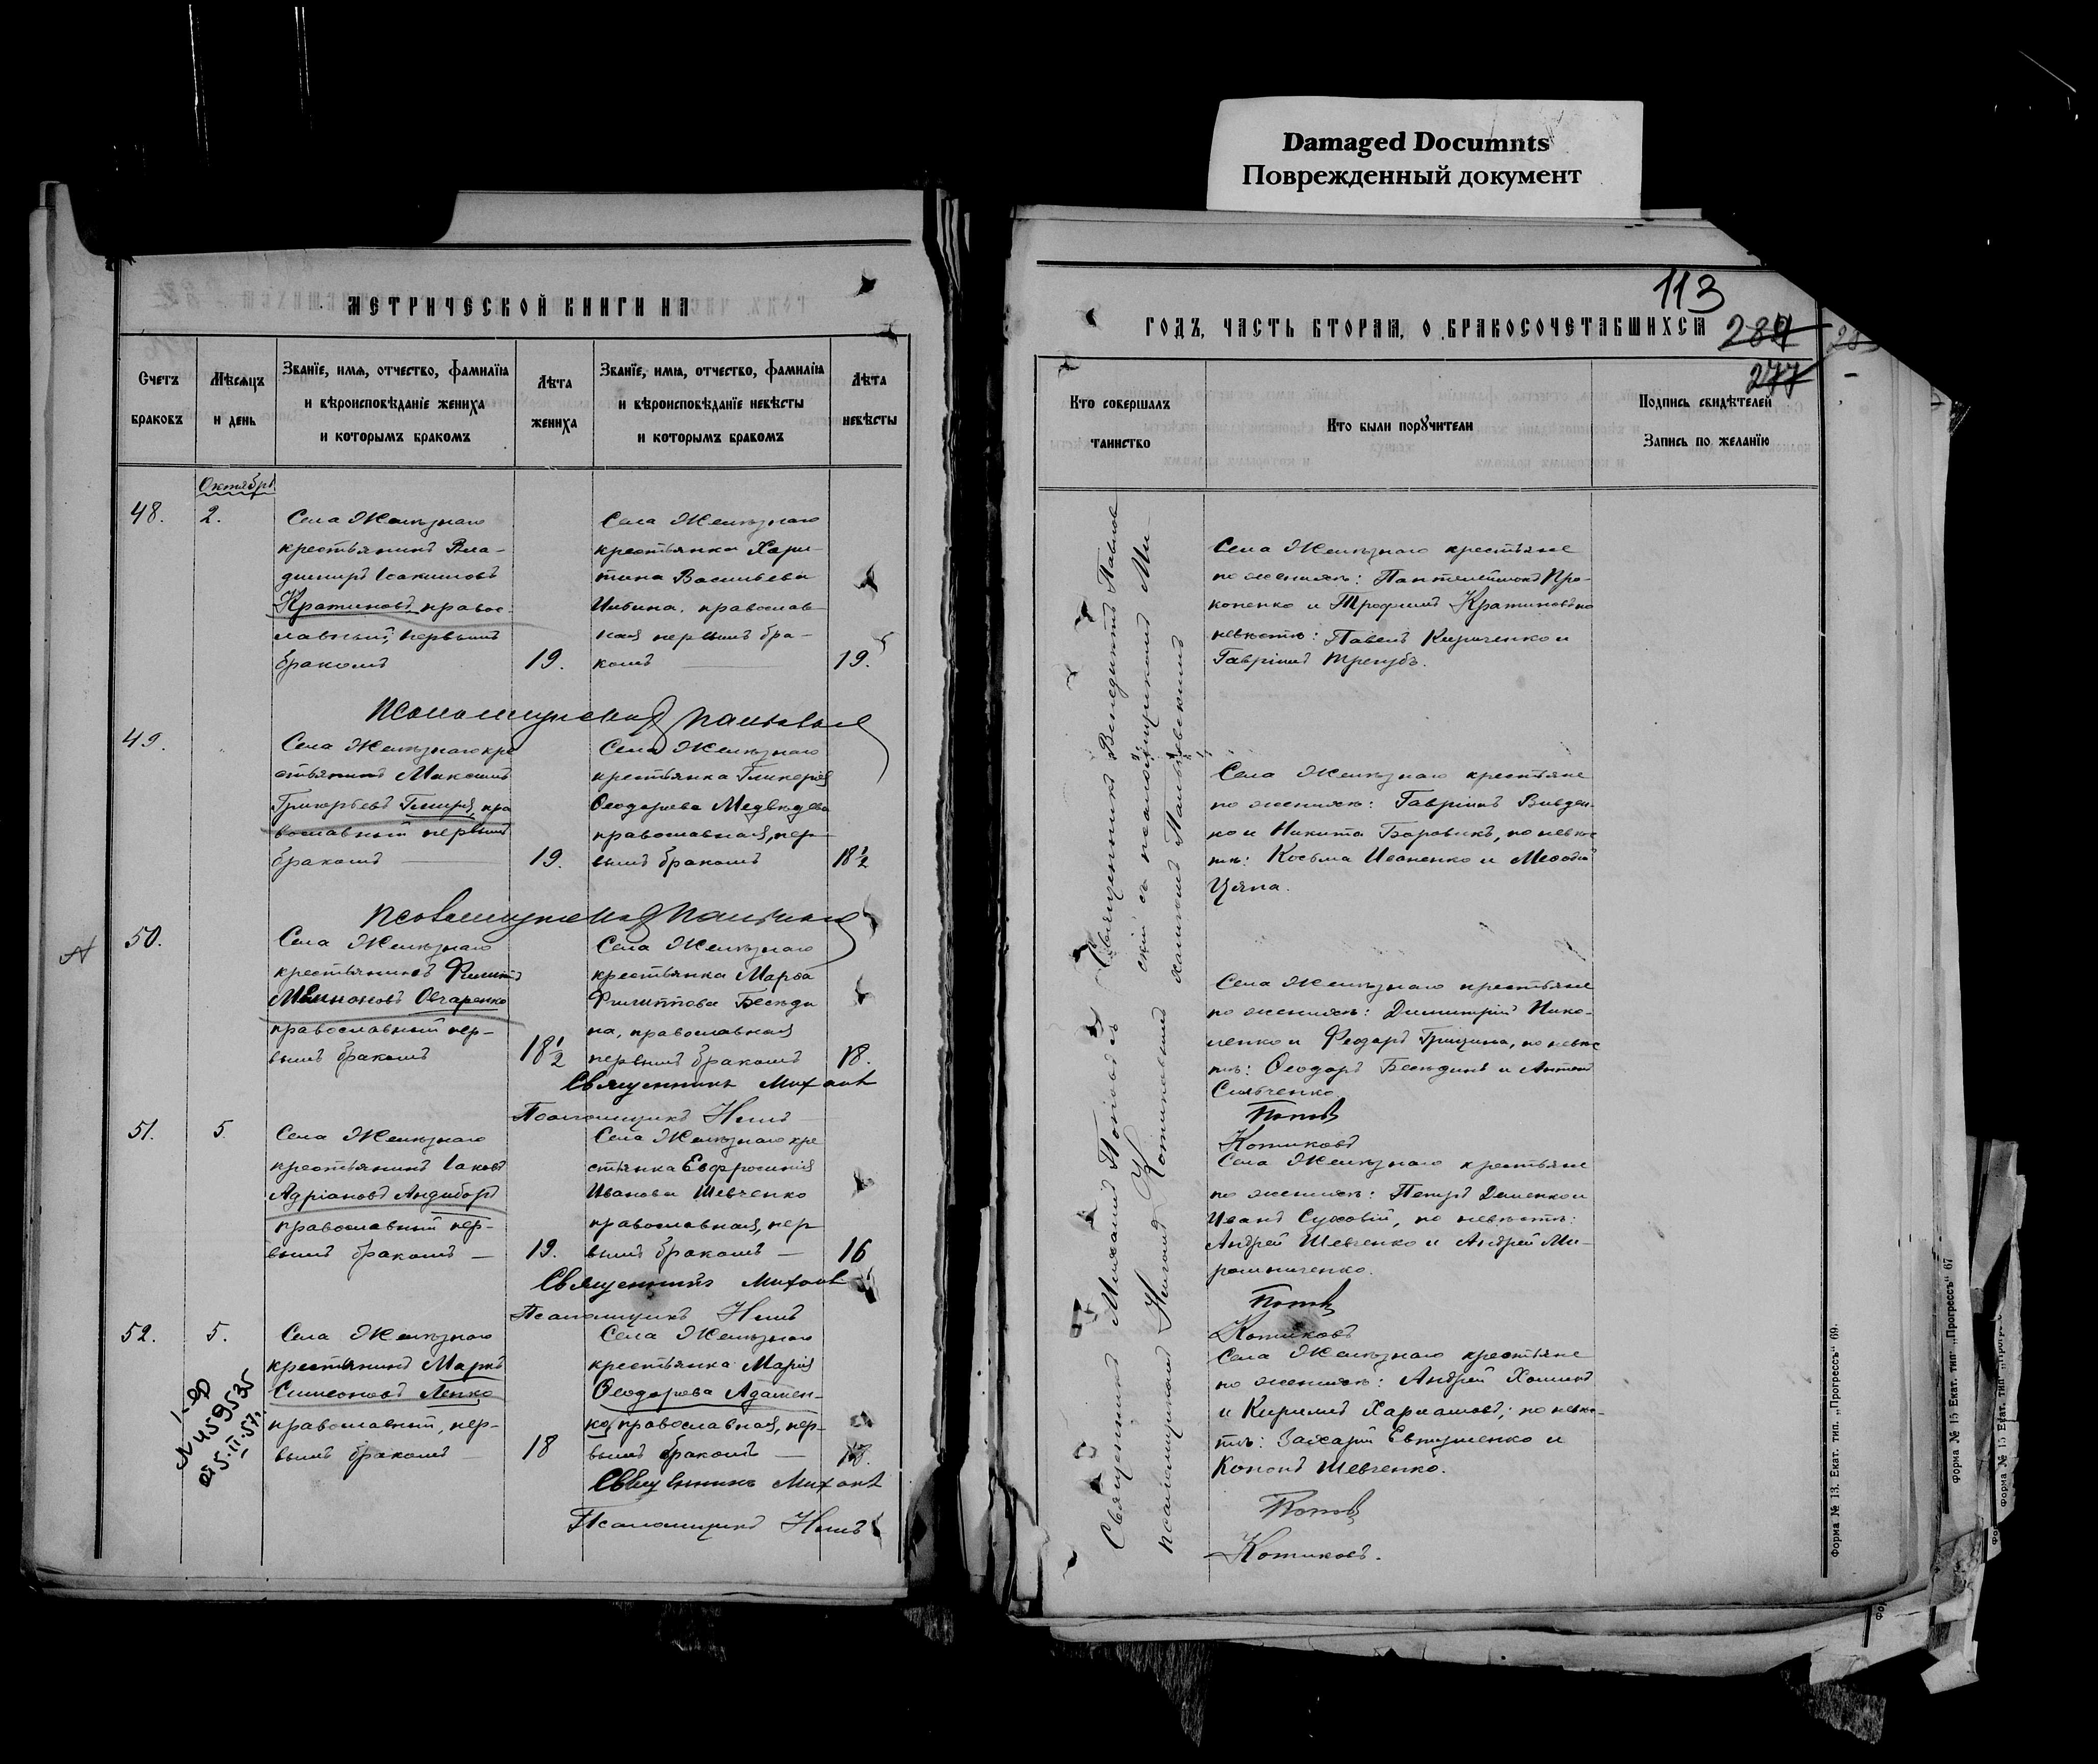 Damaged Documnts
Поврежденный документ
МЕТРИЧЕСКОЙ КНИГИ НА
Счетъ
браковъ
Мѣсяцъ
и день
Званїе, имя, отчество, фамилїя
и вѣроисповѣданїе жениха
и которымъ бракомъ
Лѣта
жениха
Званїе, имя, отчество, фамилїя
и вѣроисповѣданїе невѣсты
и которымъ бракомъ
Лѣта
невѣсты
Октябрь
48.
2.
Села Желѣзнаго
крестьянинъ Вла-
димиръ Іоакимовъ
Кратиновъ, правос-
лавный, первымъ
бракомъ
19.
Села Желѣзнаго
крестьянка Хари-
тина Васильева
Ильина, православ-
ная первымъ бра-
комъ
19.
49.
Села Желѣзнаго кре
стьянинъ Максимъ
Григорьевъ Гмиря, пра
вославный первымъ
бракомъ
19.
Села Желѣзнаго
крестьянка Гликерія
Ѳеодорова Медвѣдева
православная, пер-
вымъ бракомъ
18 1/2
50.
Села Желѣзнаго
крестьянинъ Филиппъ
Овчаренко
православный пер-
вымъ бракомъ
18 1/2
Села Желѣзнаго
крестьянка Марѳа
Филиппова Бесѣди
на, православная
первымъ бракомъ
18.
Священникъ Михаилъ
Псаломщикъ Нилъ
51.
5.
Села Желѣзнаго
крестьянинъ Іаковъ
Адріановъ Андиборъ
православный пер-
вымъ бракомъ —
19.
Села Желѣзнаго кре
стьянка Евфросинія
Иванова Шевченко
православная, пер
вымъ бракомъ —
16
Священникъ Михаилъ
Псаломщикъ Нилъ
52.
5.
I-ЕР
N 459535
от 5.II.57г.
Села Желѣзнаго
крестьянинъ Маркъ
Симеоновъ Лепко
православный, пер-
вымъ бракомъ
18
Села Желѣзнаго
крестьянка Марія
Ѳеодорова Адамен-
ко, православная, пер-
вымъ бракомъ —
18.
Священникъ Михаилъ
Псаломщикъ Нилъ
113
ГОДЪ, ЧАСТЬ ВТОРАЯ, О БРАКОСОЧЕТАВШИХСЯ
284
277
Кто совершалъ
таинство
Кто были порꙋчители
Подпись свидѣтелей
Запись по желанїю
Священникъ Михаилъ Поповъ съ
псаломщикомъ Нилом Котиковымъ
Священникъ Венедиктъ Павлов
скій съ псаломщикомъ Ми-
хаиломъ Пальковскимъ
Села Желѣзнаго крестьяне
по женихѣ: Пантелеймонъ Про-
копенко и Трофимъ Кратиновъ по
невѣстѣ: Павелъ Кириченко и
Гавріилъ Трегубъ.
Села Желѣзнаго крестьяне
по женихѣ: Гавріилъ Вивден-
ко и Никита Боровикъ, по невѣс
тѣ: Косьма Иваненко и Меѳодій
Цяпа.
Села Желѣзнаго крестьяне
по женихѣ: Димитрій Нико-
ленко и Феодоръ Грицина, по невѣс
тѣ: Ѳеодоръ Бесѣдинъ и Антонъ
Поповъ
Котиковъ
Села Желѣзнаго крестьяне
по женихѣ: Петръ Даценко и
Иванъ Суховій, по невѣстѣ:
Андрей Шевченко и Андрей Ми-
рошниченко.
Поповъ
Котиковъ
Села Желѣзнаго крестьяне
по женихѣ: Андрей Хоминъ
и Кирилъ Харламовъ; по невѣс-
тѣ: Захарій Евтушенко и
Кононъ Шевченко.
Поповъ
Котиковъ.
Форма № 13. Екат. тип. „Прогрессъ“ 69.
Форма № 15 Екат. тип. „Прогрессъ“ 67